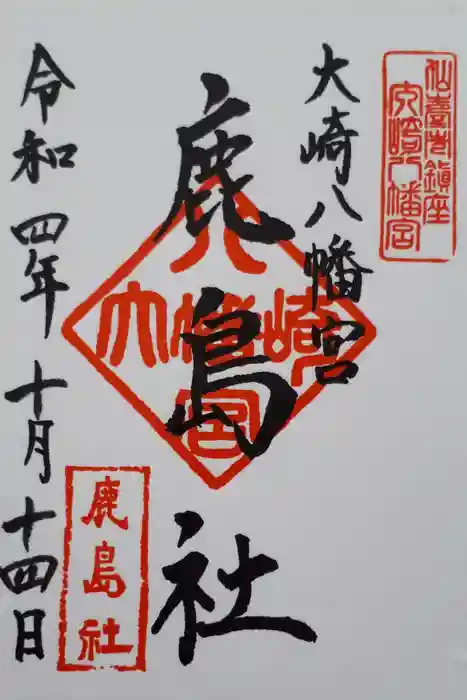 仙臺市鎮座
大崎八幡宮
大崎八幡宮
鹿島社
八幡宮
大崎
鹿島社
令和四年十月十四日